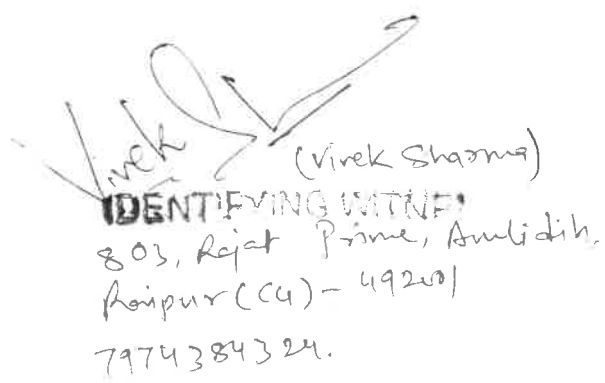 Vivek S
(Vivek Sharma)
IDENTIFYING WITNE
803, Rajat Prime, Amlidih,
Raipur (CG) - 492001
7974384324.